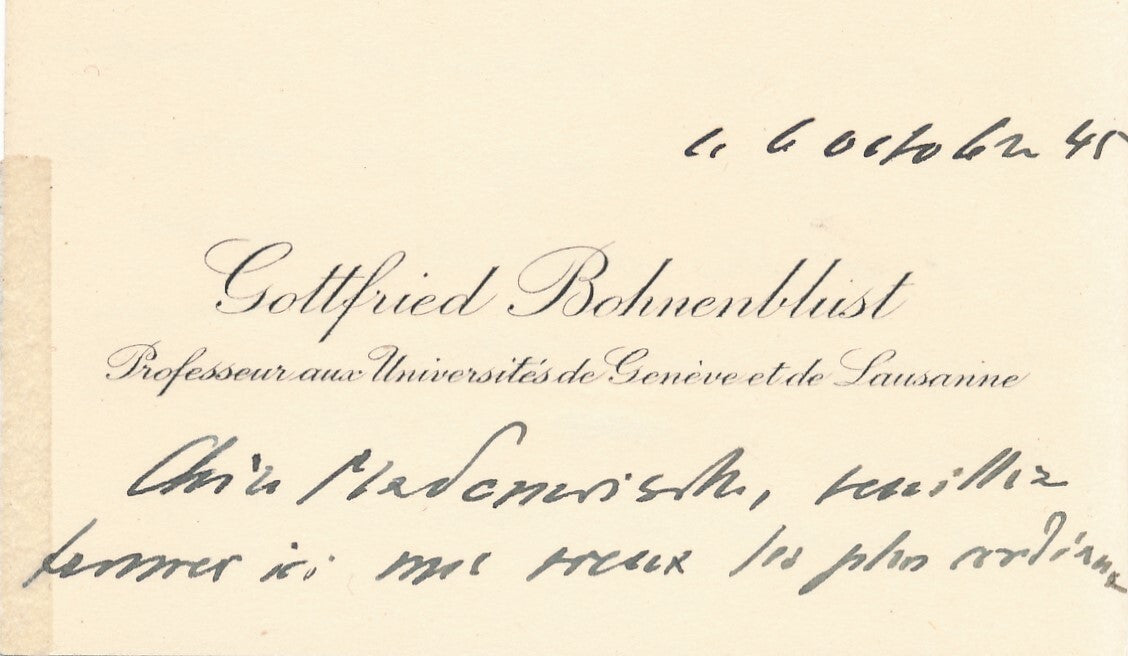 le 6 octobre 45
Gottfried Bohnenblust
Professeur aux Universités de Genève et de Lausanne
Chère Mademoiselle, veuillez
trouver ici mes vœux les plus cordiaux